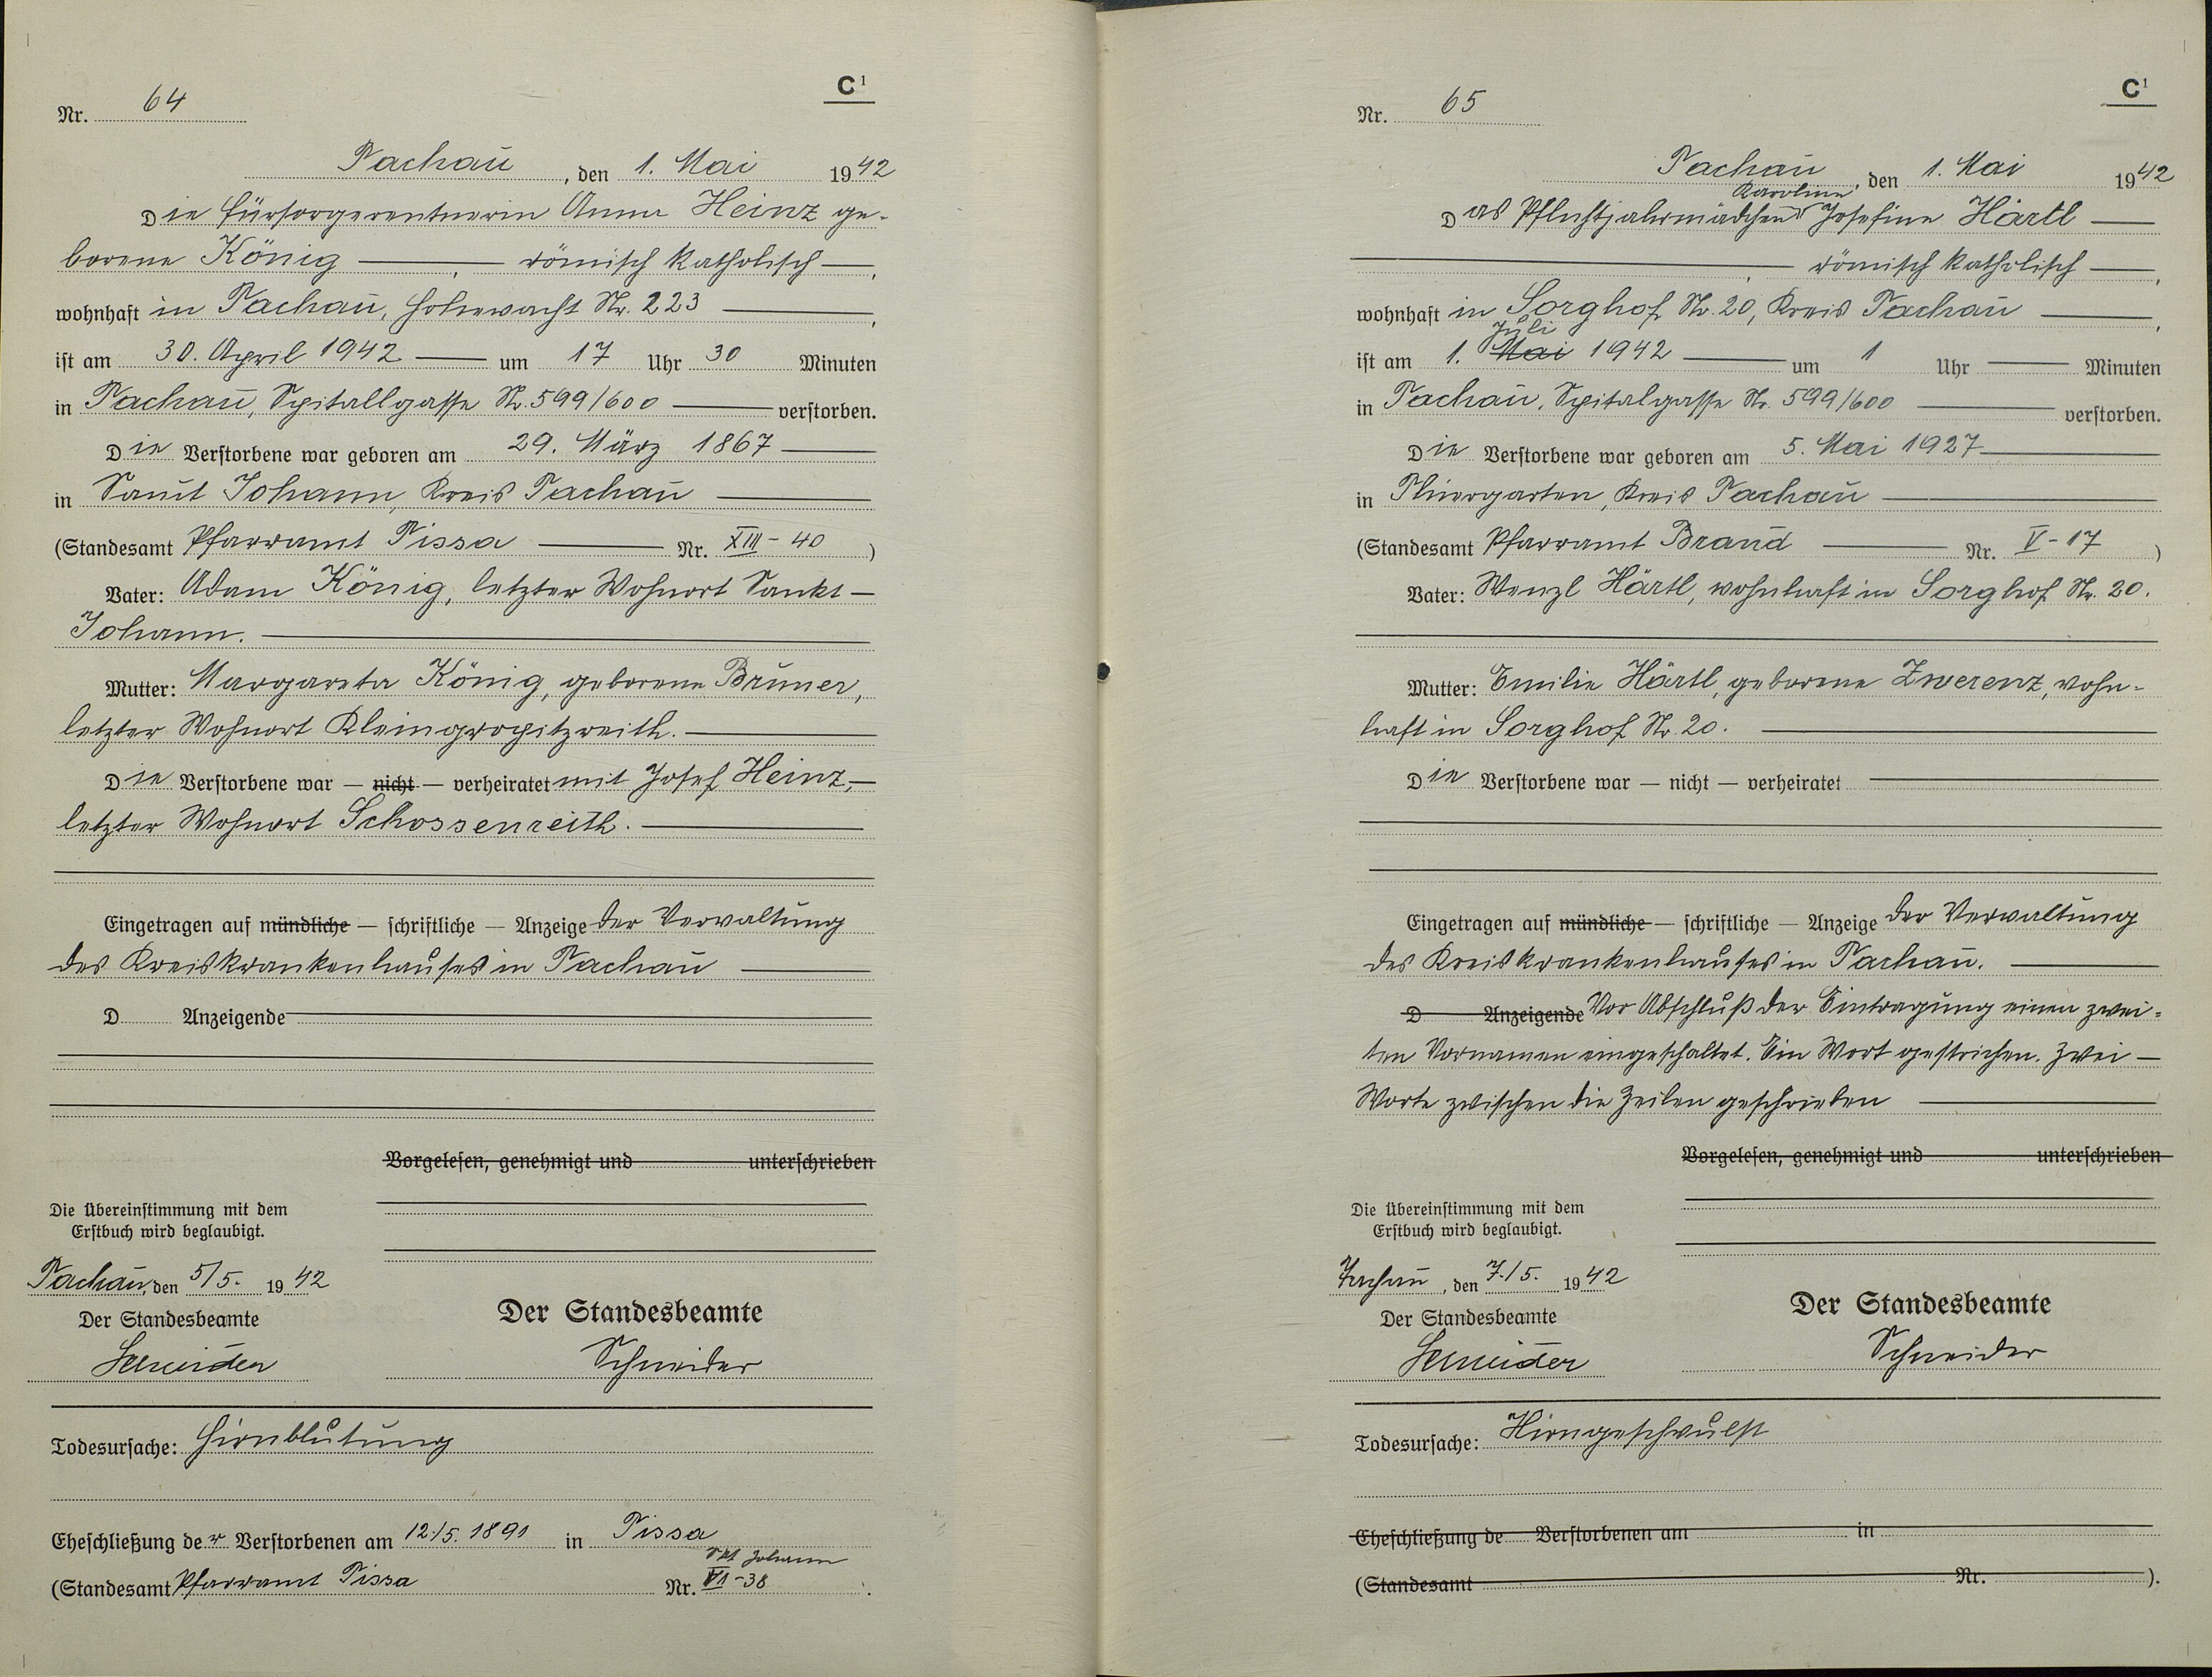 C¹
Nr. 64
Tachau, den 1. Mai 1942
Die Fürsorgerentnerin Anna Heinz ge-
borene König — , — römisch katholisch —,
wohnhaft in Tachau, Hohewacht Nr. 223 —,
ist am 30. April 1942 — um 17 Uhr 30 Minuten
in Tachau, Spitallgasse Nr. 599/600 — verstorben.
Die Verstorbene war geboren am 29. März 1867 —
in Sankt Johann, Kreis Tachau —
(Standesamt Pfarramt Tissa — Nr. XIII - 40 )
Vater: Adam König, letzter Wohnort Sankt —
Johann. —
Mutter: Margareta König, geborene Bruner,
letzter Wohnort Kleingropitzreith. —
Die Verstorbene war — nicht — verheiratet mit Josef Heinz, —
letzter Wohnort Schossenreith. —
Eingetragen auf mündliche — schriftliche — Anzeige der Verwaltung
des Kreiskrankenhauses in Tachau —
D Anzeigende
Vorgelesen, genehmigt und unterschrieben
Die Übereinstimmung mit dem
Erstbuch wird beglaubigt.
Tachau, den 5/5. 1942
Der Standesbeamte
Schneider
Der Standesbeamte
Schneider
Todesursache: Hirnblutung
Eheschließung der Verstorbenen am 12./5. 1891 in Tissa
Skt Johann
(Standesamt Pfarramt Tissa Nr. VI - 38 .
C¹
Nr. 65
Tachau, den 1. Mai 1942
Karoline
Das Pflichtjahrmädchen Josefine Härtl —
— , — römisch katholisch —,
wohnhaft in Sorghof Nr. 20, Kreis Tachau —,
Juli
ist am 1. Mai 1942 — um 1 Uhr — Minuten
in Tachau, Spitalgasse Nr. 599/600 — verstorben.
Die Verstorbene war geboren am 5. Mai 1927 —
in Thiergarten, Kreis Tachau —
(Standesamt Pfarramt Brand — Nr. V - 17 )
Vater: Wenzl Härtl, wohnhaft in Sorghof Nr. 20.
Mutter: Emilie Härtl, geborene Zwerenz, wohn-
haft in Sorghof Nr. 20. —
Die Verstorbene war — nicht — verheiratet —
Eingetragen auf mündliche — schriftliche — Anzeige der Verwaltung
des Kreiskrankenhauses in Tachau. —
D Anzeigende Vor Abschluß der Eintragung einen zwei-
ten Vornamen eingeschaltet. Ein Wort gestrichen. Zwei —
Worte zwischen die Zeilen geschrieben —
Vorgelesen, genehmigt und unterschrieben
Die Übereinstimmung mit dem
Erstbuch wird beglaubigt.
Tachau, den 7./5. 1942
Der Standesbeamte
Schneider
Der Standesbeamte
Schneider
Todesursache: Hirngeschwulst
Eheschließung de Verstorbenen am in
(Standesamt Nr. ).